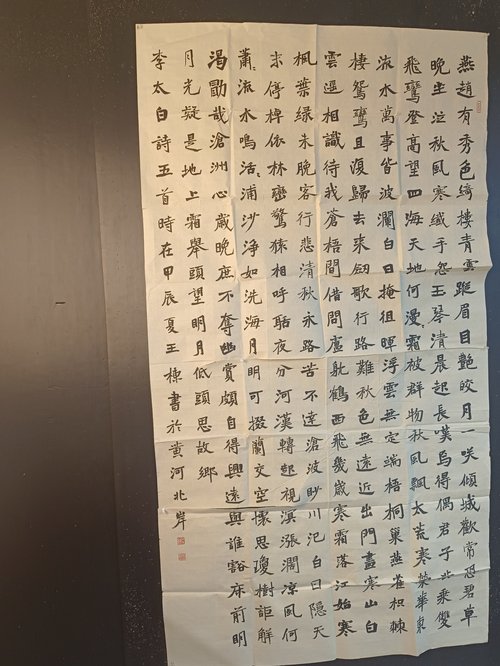 燕趙有秀色綺樓青雲端眉目艷皎月一笑傾城歡常恐碧草
晚坐泣秋風寒纖手怨玉琴清晨起長嘆焉得偶君子共乘雙
飛鸞登高望四海天地何漫々霜被群物秋風飄大荒寒榮華東
流水萬事皆波瀾白日掩徂暉浮雲無定端梧桐巢燕雀枳棘
棲鴛鸞且復歸去來劒歌行路難秋色無遠近出門盡寒山白
雲遥相識待我蒼梧間借問盧躭鶴西飛幾歲寒霜落江始寒
楓葉綠未晚客行悲清秋永路苦不達滄波眇川汜白日隱天
末停棹依林巒驚猿相呼聒夜分河漢轉起視溟漲闊凉風何
蕭々流水鳴活々浦沙淨如洗海月明可掇蘭交空懷思瓊樹詎解
渴勖哉滄洲心歲晚庶不奪幽賞頗自得興遠與誰豁床前明
月光疑是地上霜舉頭望明月低頭思故鄉
李太白詩五首時在甲辰夏王棟書於黄河北岸